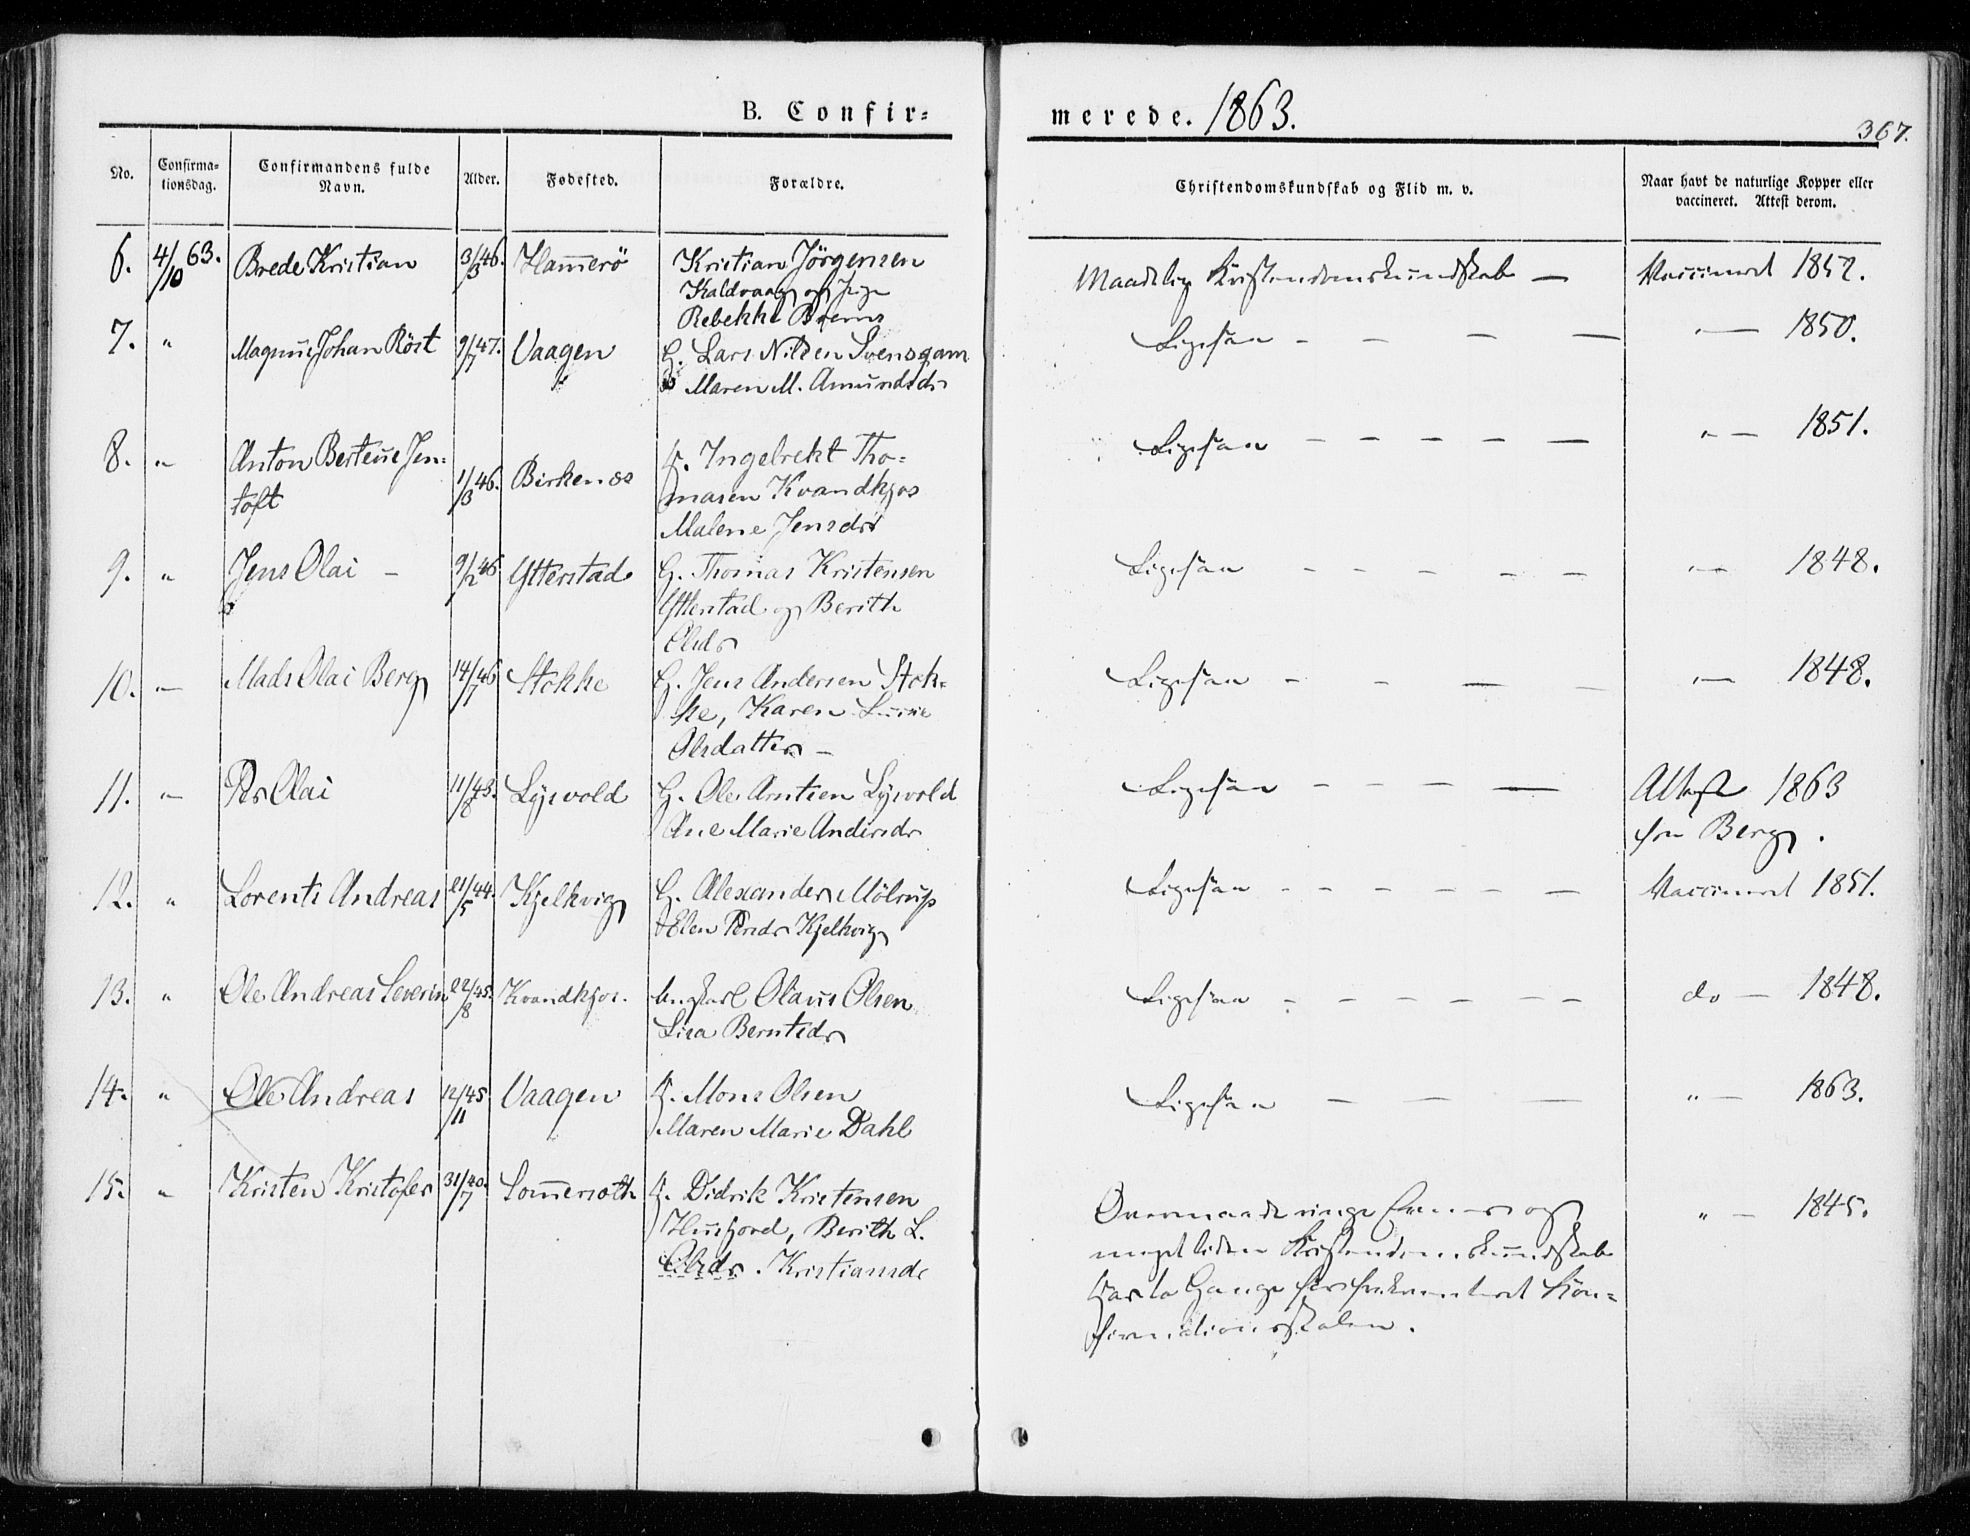 B. Confir=
merede. 1863.
367.
No.
Confirma-
tionsdag.
Confirmandens fulde
Navn.
Alder.
Fødested.
Forældre.
Christendomskundskab og Flid m. v.
Naar havt de naturlige Kopper eller
vaccineret. Attest derom.
6. 4/10 63. Brede Kristian 3/3 46. Ham̄erö Kristian Jörgensen
Kaldvaag og
Rebekka
Maadelig Kristendomskundskab — Vaccineret 1852.
7. " Magnus Johan Röst 9/7 47. Vaagen G. Lars Nilsen Svensgam
Maren M. Amundsdr
Ligesaa - - - — " — 1850.
8. " Anton Berteus Jen=
toft
1/3 46. Birkenæs
. Ingebrekt Tho=
masen Kvandkjos
Malene Jensdr
Ligesaa — — — — — " — 1851.
9. " Jens Olai — 9/2 46 Ytterstad G. Thomas Kristensen
Ytterstad og Berith
Olsdr
Ligesaa - - - - - " — 1848.
10. — Mads Olai Berg 14/7 46 Stokke G. Jens Andersen Stok-
ke, Karen
Olsdatter —
Ligesaa - - — - " — 1848.
11. — Per Olai 11/8 43. Lysvold G. Ole Arntsen Lysvold
Ane Marie Andersdr
Ligesaa - - - — Attest 1863
fra Berg.
12. " Lorents Andreas 21/5 44. Kjelkvig G. Alexander Mölrup
Elen Persdr Kjelkvig
Ligesaa - - - - - — Vaccineret 1851.
13. " Ole Andreas Severin 22/8 45. Kvandkjos. Ungkarl Olaus Olsen
Lisa Berntsdr
Ligesaa - - - - - - do — 1848.
14. " Ole Andreas 12/11 45 Vaagen . Mons Olsen
Maren Marie Dahl
Ligesaa — — — " — 1863.
15. " Kristen Kristofer 31/7 40. Som̄ersæth . Didrik Kristensen
Husfjord, Berith L.
Olsdr. Kristiansdr
Overmaade ringe Evner og " — 1845.
meget liden Kristendomskundskab
Har to Gange før frekventeret Kon=
firmationsskolen.